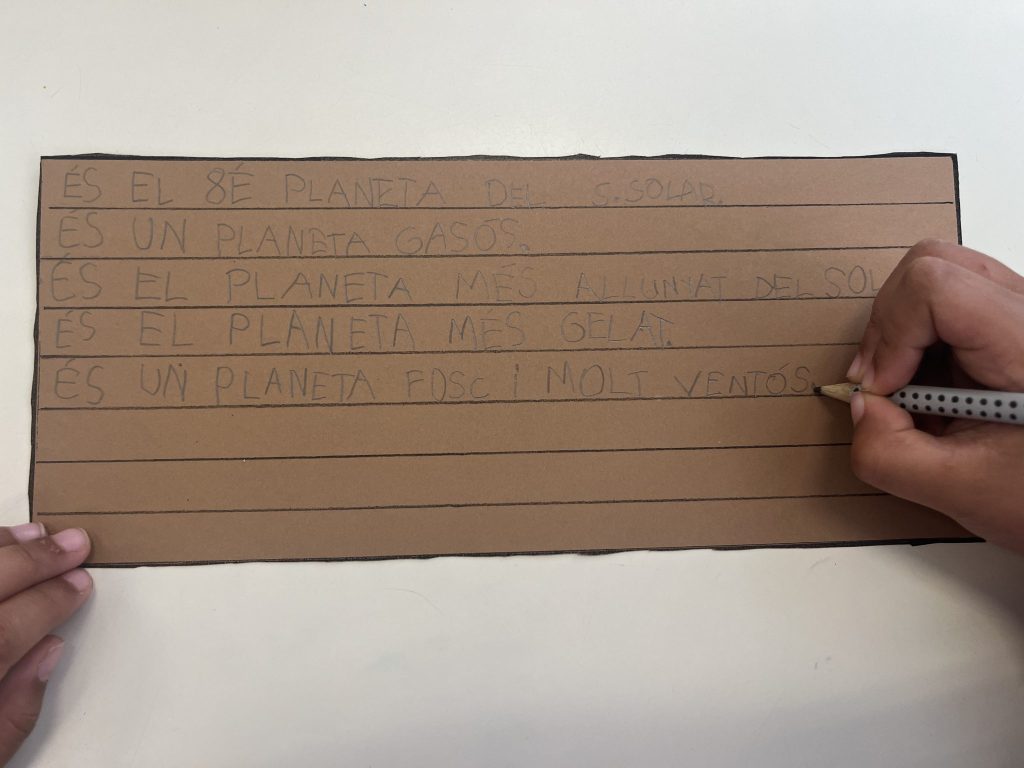 ÉS EL 8É PLANETA DEL S.SOLAR.
ÉS UN PLANETA GASÓS.
ÉS EL PLANETA MÉS ALLUNYAT DEL SOL
ÉS EL PLANETA MÉS GELAT.
ÉS UN PLANETA FOSC i MOLT VENTÓS.